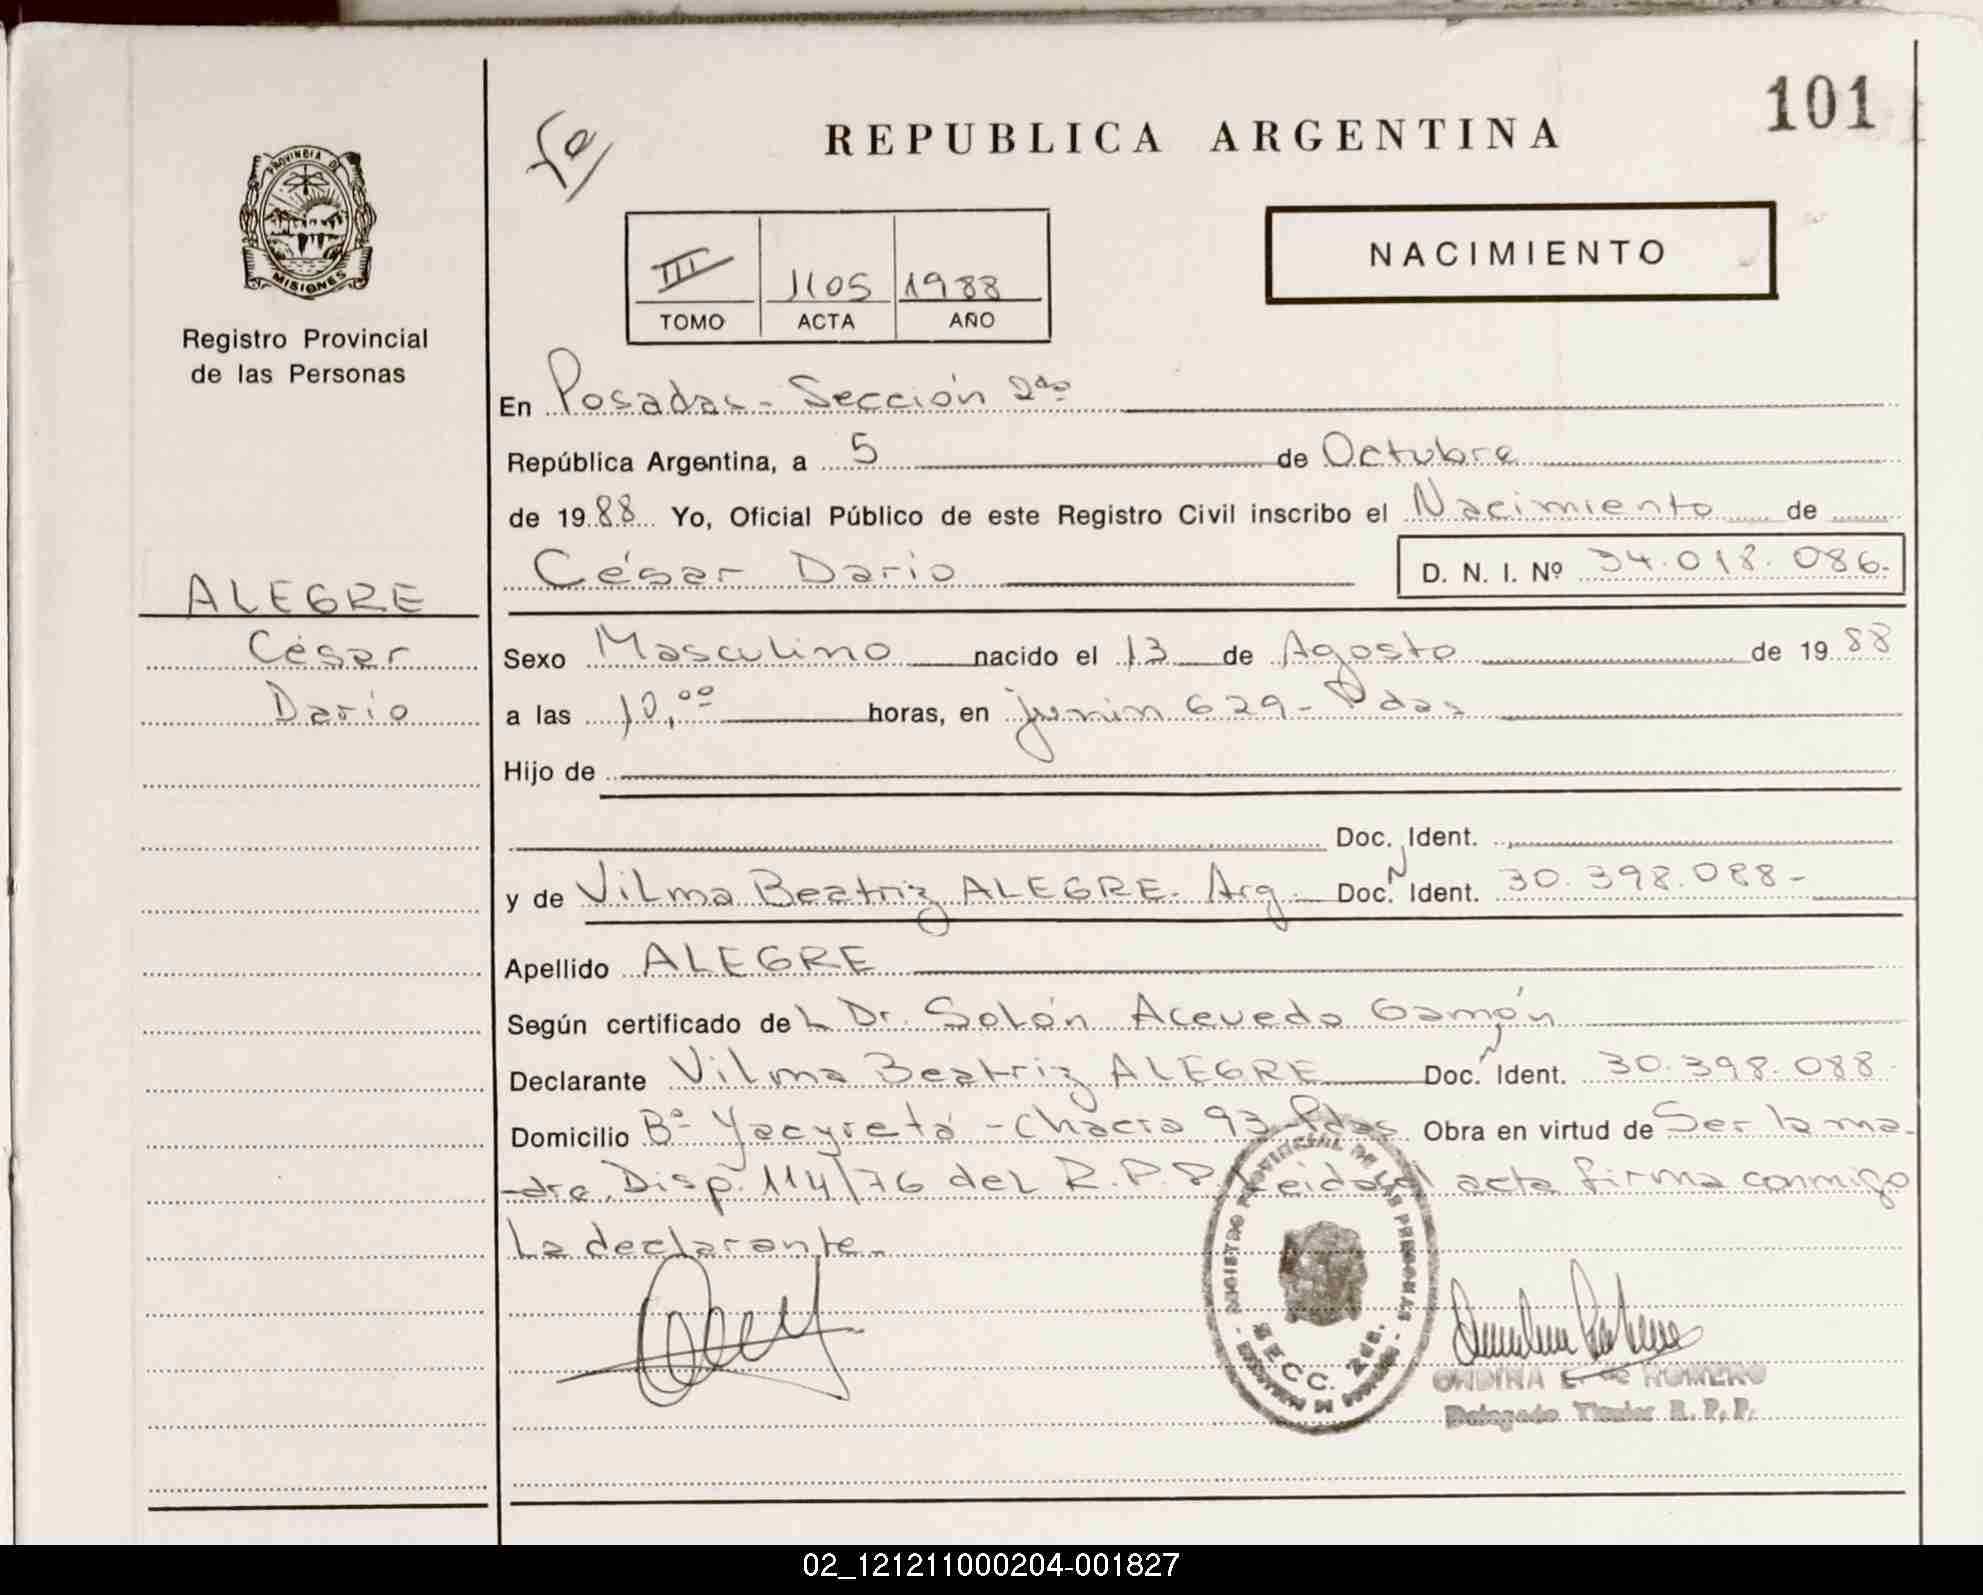 101
REPUBLICA ARGENTINA
NACIMIENTO
PROVINCIA DE
MISIONES
Registro Provincial
de las Personas
III 1105 1988
TOMO ACTA AÑO
En Posadas - Sección 2da
República Argentina, a 5 de Octubre
de 1988 Yo, Oficial Público de este Registro Civil inscribo el Nacimiento de
César Darío D. N. I. Nº 34.018.086.-
ALEGRE
César
Darío
Sexo Masculino nacido el 13 de Agosto de 1988
a las 10,00 horas, en junín 629 - Pdas
Hijo de
Doc. Ident.
y de Vilma Beatriz ALEGRE. Arg. Doc. N Ident. 30.398.088-
Apellido ALEGRE
Según certificado del Dr. Solón Acevedo Gamón
Declarante Vilma Beatriz ALEGRE Doc. N Ident. 30.398.088
Domicilio Bº Yacyretá - Chacra 93 - Pdas Obra en virtud de Ser la ma-
-dre. Disp. 114/76 del R.P.P. Leida el acta firma conmigo
la declarante.-
REGISTRO PROVINCIAL DE LAS PERSONAS
SECC. 2da.
POSADAS MISIONES
ORDINA E. de ROMERO
Delegado Titular R. P. P.
02_121211000204-001827